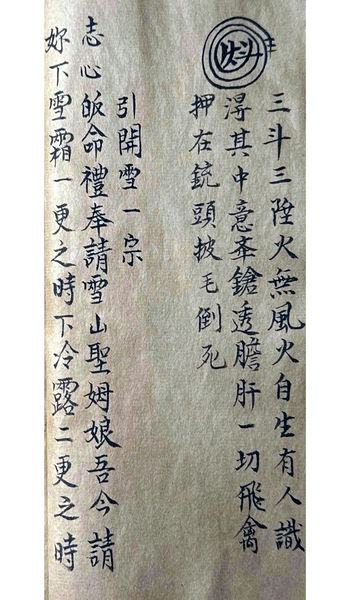 三斗三陞火無風火自生有人識
淂其中意鎗透膽肝一切飛禽
押在銃頭披毛倒死
引開雪一宗
志心皈命禮奉請雪山聖姆娘吾今請
妳下雪霜一更之時下冷露二更之時